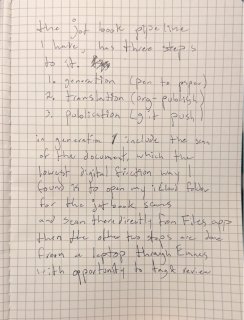 the jot book pipeline
I have, has three steps
to it.
1. generation (pen to paper)
2. translation (org-publish)
3. publication (git push)
in generation I include the scan
of the document, which the
lowest digital friction way I
found is to open my icloud folder
for the jot book scans
and scan there directly from Files app
then the other two steps are done
from a laptop through Emacs
with opportunity to tag & review